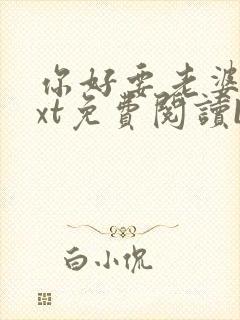 你好要老婆
xt免費閱讀
白小侃